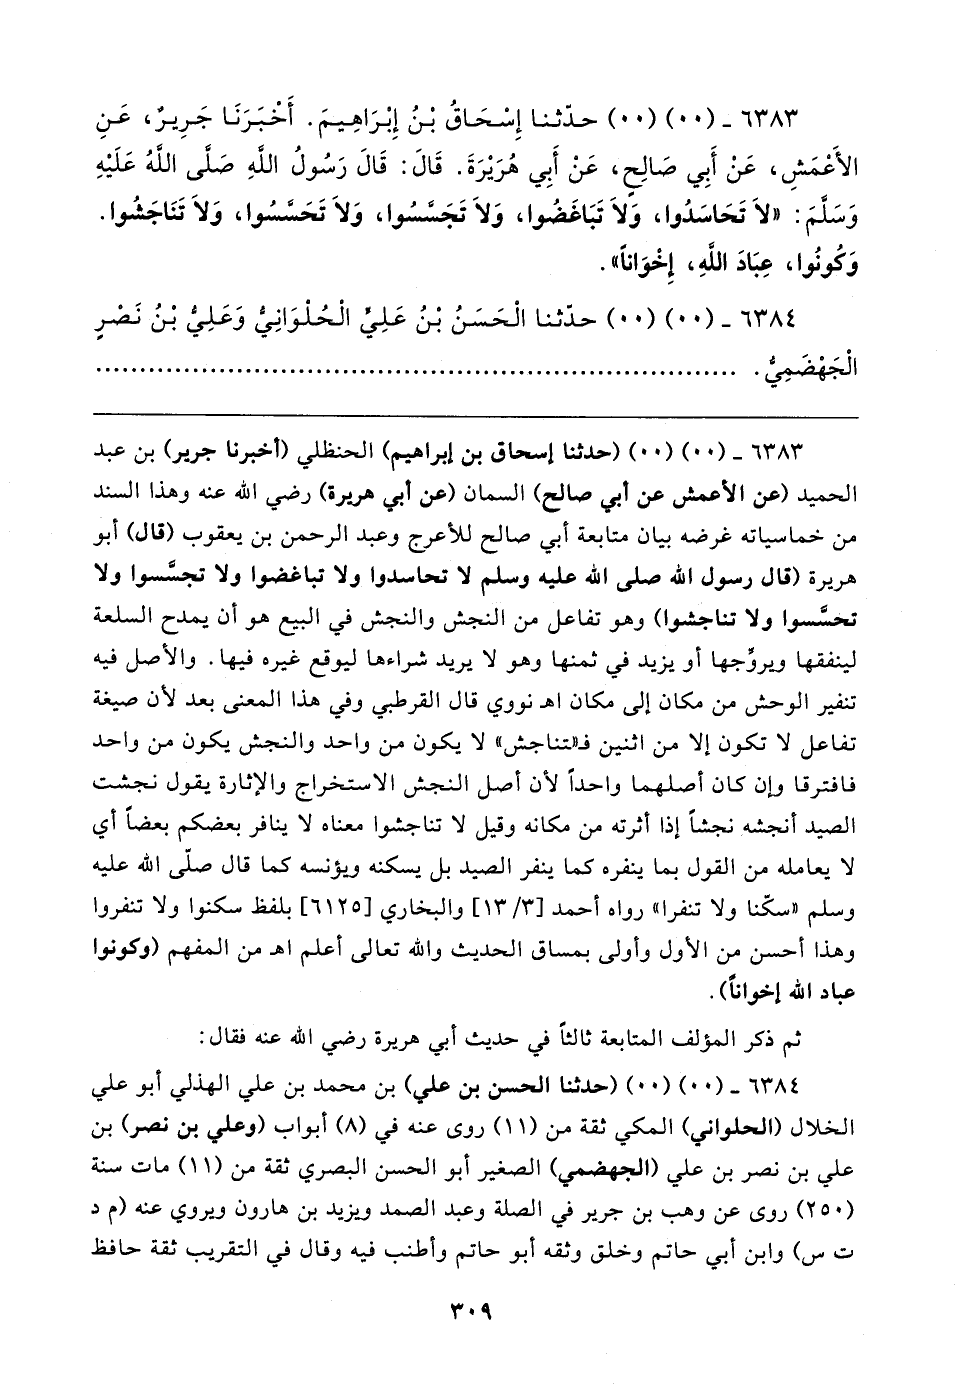 ٦٣٨٣ ـ (٠٠) (٠٠) حدّثنا إِسْحَاقُ بْنُ إِبْرَاهِيمَ. أَخْبَرَنَا جَرِيرٌ، عَنِ
الأَعْمَشِ، عَنْ أَبِي صَالِحٍ، عَنْ أَبِي هُرَيْرَةَ. قَالَ: قَالَ رَسُولُ اللَّهِ صَلَّى اللَّهُ عَلَيْهِ
وَسَلَّمَ: «لاَ تَحَاسَدُوا، وَلاَ تَبَاغَضُوا، وَلاَ تَجَسَّسُوا، وَلاَ تَحَسَّسُوا، وَلاَ تَنَاجَشُوا.
وَكُونُوا، عِبَادَ اللَّهِ، إِخْوَاناً».
٦٣٨٤ ـ (٠٠) (٠٠) حدّثنا الْحَسَنُ بْنُ عَلِيٍّ الْحُلْوَانِيُّ وَعَلِيُّ بْنُ نَصْرٍ
الْجَهْضَمِيُّ. ..............................................................
٦٣٨٣ ـ (٠٠) (٠٠) (حدثنا إسحاق بن إبراهيم) الحنظلي (أخبرنا جرير) بن عبد
الحميد (عن الأعمش عن أبي صالح) السمان (عن أبي هريرة) رضي الله عنه وهذا السند
من خماسياته غرضه بيان متابعة أبي صالح للأعرج وعبد الرحمن بن يعقوب (قال) أبو
هريرة (قال رسول الله صلى الله عليه وسلم لا تحاسدوا ولا تباغضوا ولا تجسَّسوا ولا
تحسَّسوا ولا تناجشوا) وهو تفاعل من النجش والنجش في البيع هو أن يمدح السلعة
لينفقها ويروِّجها أو يزيد في ثمنها وهو لا يريد شراءها ليوقع غيره فيها. والأصل فيه
تنفير الوحش من مكان إلى مكان اهـ نووي قال القرطبي وفي هذا المعنى بعد لأن صيغة
تفاعل لا تكون إلا من اثنين فـ«تناجش» لا يكون من واحد والنجش يكون من واحد
فافترقا وإن كان أصلهما واحداً لأن أصل النجش الاستخراج والإثارة يقول نجشت
الصيد أنجشه نجشاً إذا أثرته من مكانه وقيل لا تناجشوا معناه لا ينافر بعضكم بعضاً أي
لا يعامله من القول بما ينفره كما ينفر الصيد بل يسكنه ويؤنسه كما قال صلّى الله عليه
وسلم «سكّنا ولا تنفرا» رواه أحمد [١٣/٣] والبخاري [٦١٢٥] بلفظ سكنوا ولا تنفروا
وهذا أحسن من الأول وأولى بمساق الحديث والله تعالى أعلم اهـ من المفهم (وكونوا
عباد الله إخواناً).
ثم ذكر المؤلف المتابعة ثالثاً في حديث أبي هريرة رضي الله عنه فقال:
٦٣٨٤ ـ (٠٠) (٠٠) (حدثنا الحسن بن علي) بن محمد بن علي الهذلي أبو علي
الخلال (الحلواني) المكي ثقة من (١١) روى عنه في (٨) أبواب (وعلي بن نصر) بن
علي بن نصر بن علي (الجهضمي) الصغير أبو الحسن البصري ثقة من (١١) مات سنة
(٢٥٠) روى عن وهب بن جرير في الصلة وعبد الصمد ويزيد بن هارون ويروي عنه (م د
ت س) وابن أبي حاتم وخلق وثقه أبو حاتم وأطنب فيه وقال في التقريب ثقة حافظ
٣٠٩